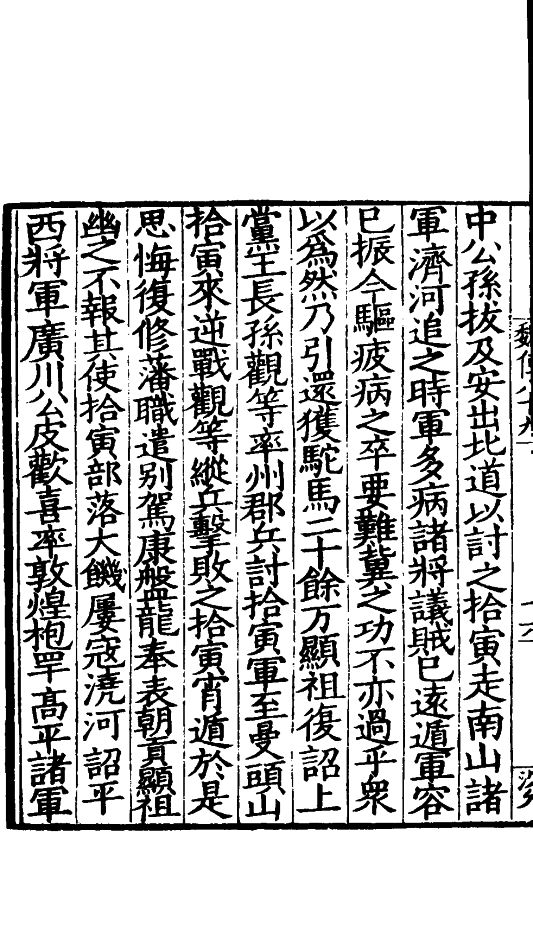 中公孫拔及安出北道以討之拾寅走南山諸
軍濟河追之時軍多病諸將議賊已遠遁軍容
已振今驅疲病之卒要難冀之功不亦過乎衆
以爲然乃引還獲駝馬二十餘万顯祖復詔上
黨王長孫觀等率州郡兵討拾寅軍至曼頭山
拾寅來逆戰觀等縱兵擊敗之拾寅宵遁於是
思悔復修藩職遣别駕康盤龍奉表朝貢顯祖
幽之不報其使拾寅部落大饑屢寇澆河詔平
西將軍廣川公皮歡喜率敦煌枹罕高平諸軍